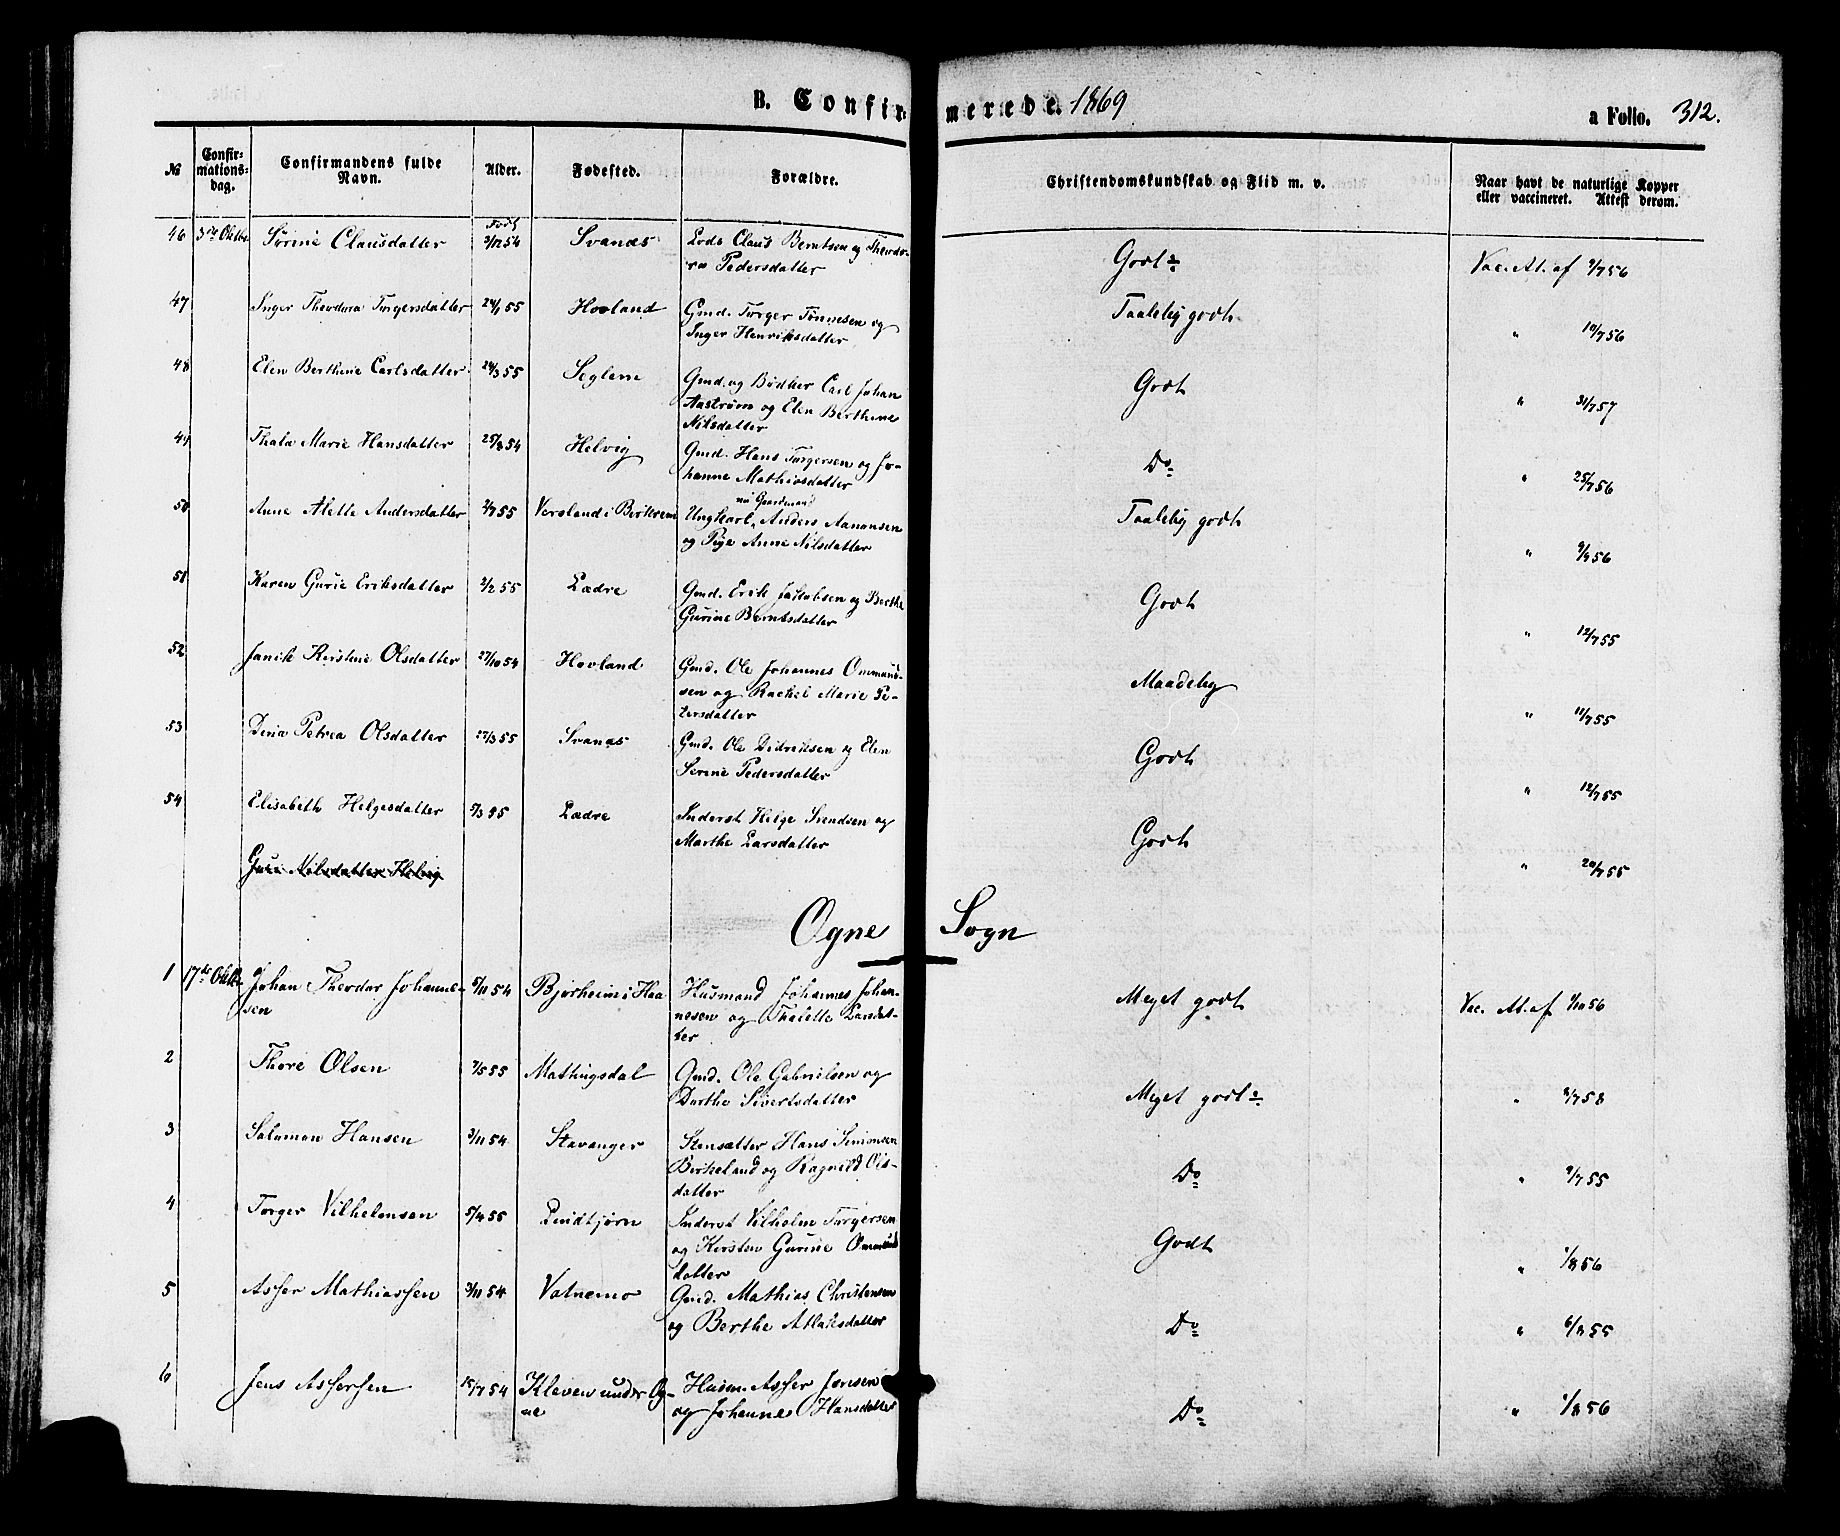 B. Confirmerede. 1869
a Folio. 312.
No
Confirmationsdag.
Confirmandens fulde Navn.
Alder.
Fødested.
Forældre.
Christendomskundskab og Flid m. v.
Naar havt de naturlige Kopper eller vaccineret. Attest derom.
46 3die Oktbr Sørine Clausdatter Født 2/12 54 Svanæs Lods Claus Berntsen og Theodo-
ra Pedersdatter Godt. Vac. At. af 9/7 56
47 Inger Theodora Torgersdatter 24/1 55 Hovland Gmd. Torger Tønnesen og
Inger Henriksdatter Taalelig godt. " 10/7 56
48 Elen Berthine Carlsdatter 24/3 55 Seglem Gmd. og Bødker Carl Johan
Aastrøm og Elen Berthine
Nilsdatter Godt " 31/7 57
49 Thala Marie Hansdatter 25/8 54 Helvig Gmd. Hans Torgersen og Jo-
hanne Mathiasdatter Do " 25/7 56
50 Anne Alette Andersdatter 2/7 55 Versland i Berkrem nu Gaardmand
Ungkarl, Anders Aanansen
og Pige Anne Nilsdatter Taalelig godt " 9/8 56
51 Karen Gurie Eriksdatter 2/2 55 Lædre Gmd. Erik Jakobsen og Berthe
Gurine Berntsdatter Godt " 12/7 55
52 Janik Kirstine Olsdatter 27/10 54 Hovland Gmd. Ole Johannes Ommund-
sen og Rachel Marie Pe-
tersdatter Maadelig " 11/7 55
53 Dina Petrea Olsdatter 27/3 55 Svanæs Gmd. Ole Didriksen og Elen
Serine Pedersdatter Godt " 12/7 55
54 Elisabeth Helgesdatter 5/3 55 Lædre Inderst Helge Svendsen og
Marthe Larsdatter Godt " 20/7 55
Guri Nilsdatter Helvig
Ogne Sogn
1 17de Oktbr Johan Theodor Johanne-
sen 5/11 54 Bjorheim i Haa Husmand Johannes Johan-
nesen og Thalette Larsdat-
ter Meget godt Vac. At. af 1/10 56
2 Thore Olsen 7/5 55 Mathingsdal Gmd. Ole Gabrielsen og
Dorthe Sivertsdatter Meget godt " 8/7 58
3 Salamon Hansen 3/11 54 Stavanger Stensætter Hans Simonsen
Birkeland og Ragnild Ols-
datter Do " 9/7 55
4 Torger Vilhelmsen 5/4 55 Lindtjørn Inderst Vilhelm Torgersen
og Kirsten Gurine Ommunds
datter Godt " 1/8 56
5 Asser Mathiassen 3/11 54 Vatnemo Gmd. Mathias Christensen
og Berthe Atlaksdatter Do " 6/8 55
6 Jens Assersen 15/7 54 Kleven under Og-
ne Husm. Asser Jensen
og Johanne Hansdatter Do " 1/8 56